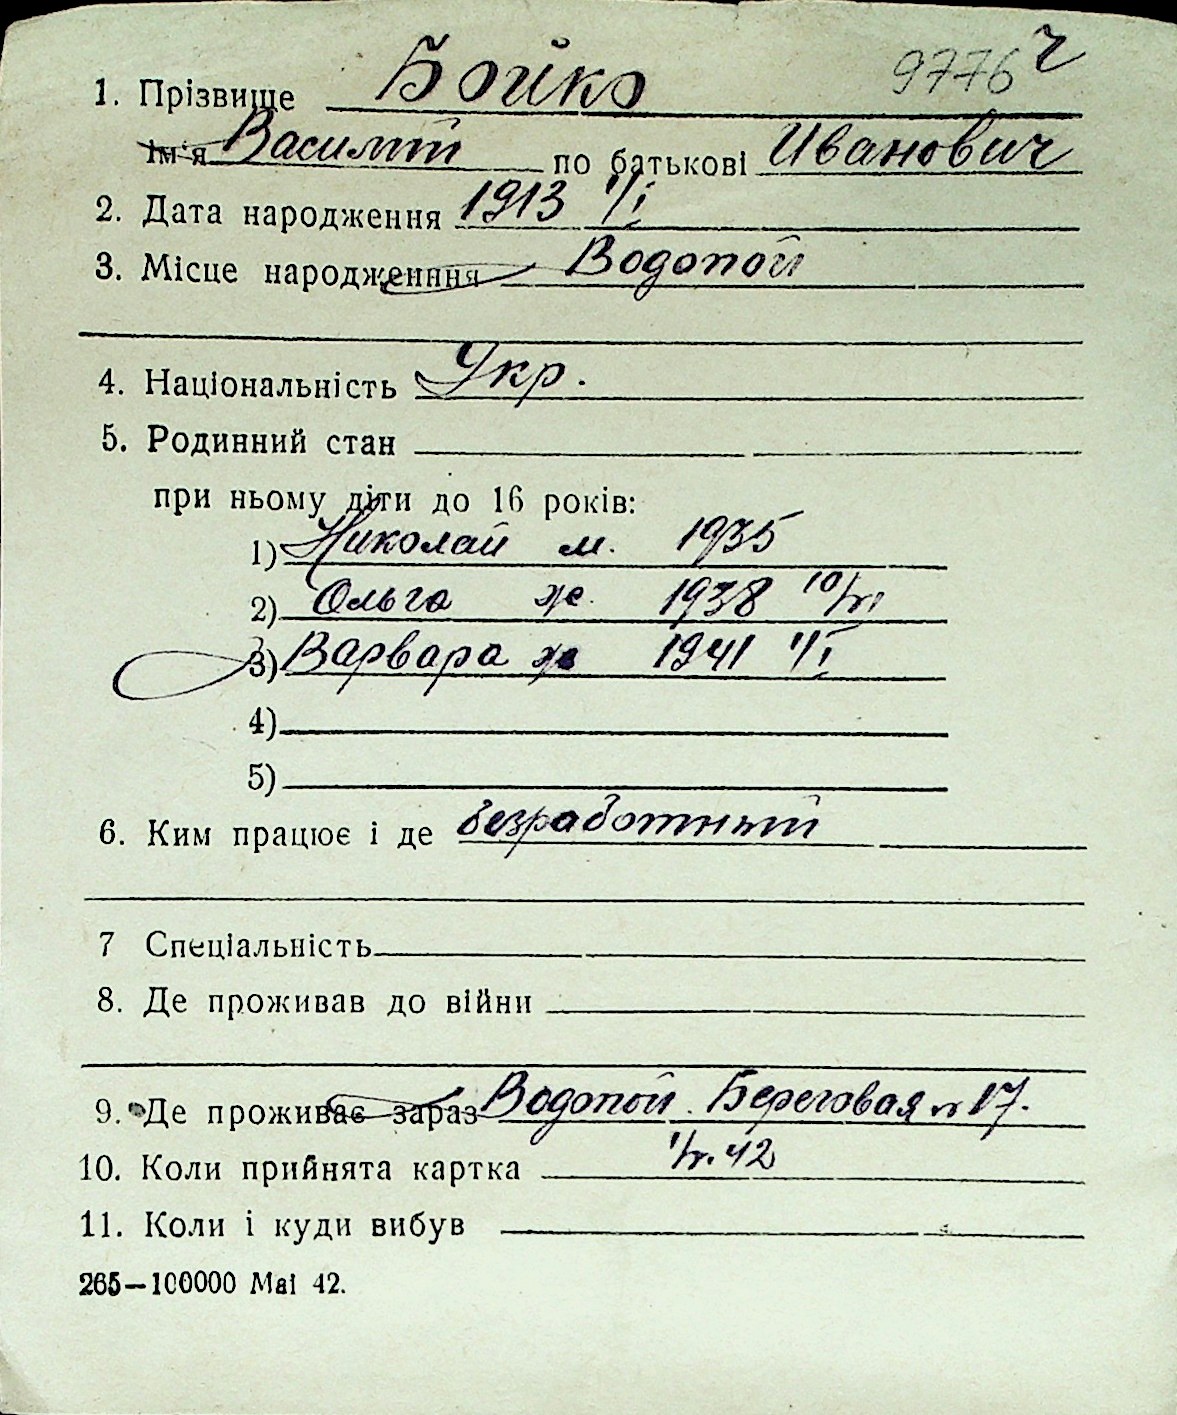 1. Прізвище Бойко 9776 ч
Ім'я Василий по батькові Иванович
2. Дата народження 1913 1/I
3. Місце народженння Водопой
4. Національність Укр.
5. Родинний стан
при ньому діти до 16 років:
1) Николай м. 1935
2) Ольга ж. 1938 10/VI
3) Варвара ж 1941 1/I
4)
5)
6. Ким працює і де безработный
7 Спеціальність
8. Де проживав до війни
9. Де проживає зараз Водопой. Береговая n 17.
10. Коли прийнята картка 42
11. Коли і куди вибув
265—100000 Маі 42.